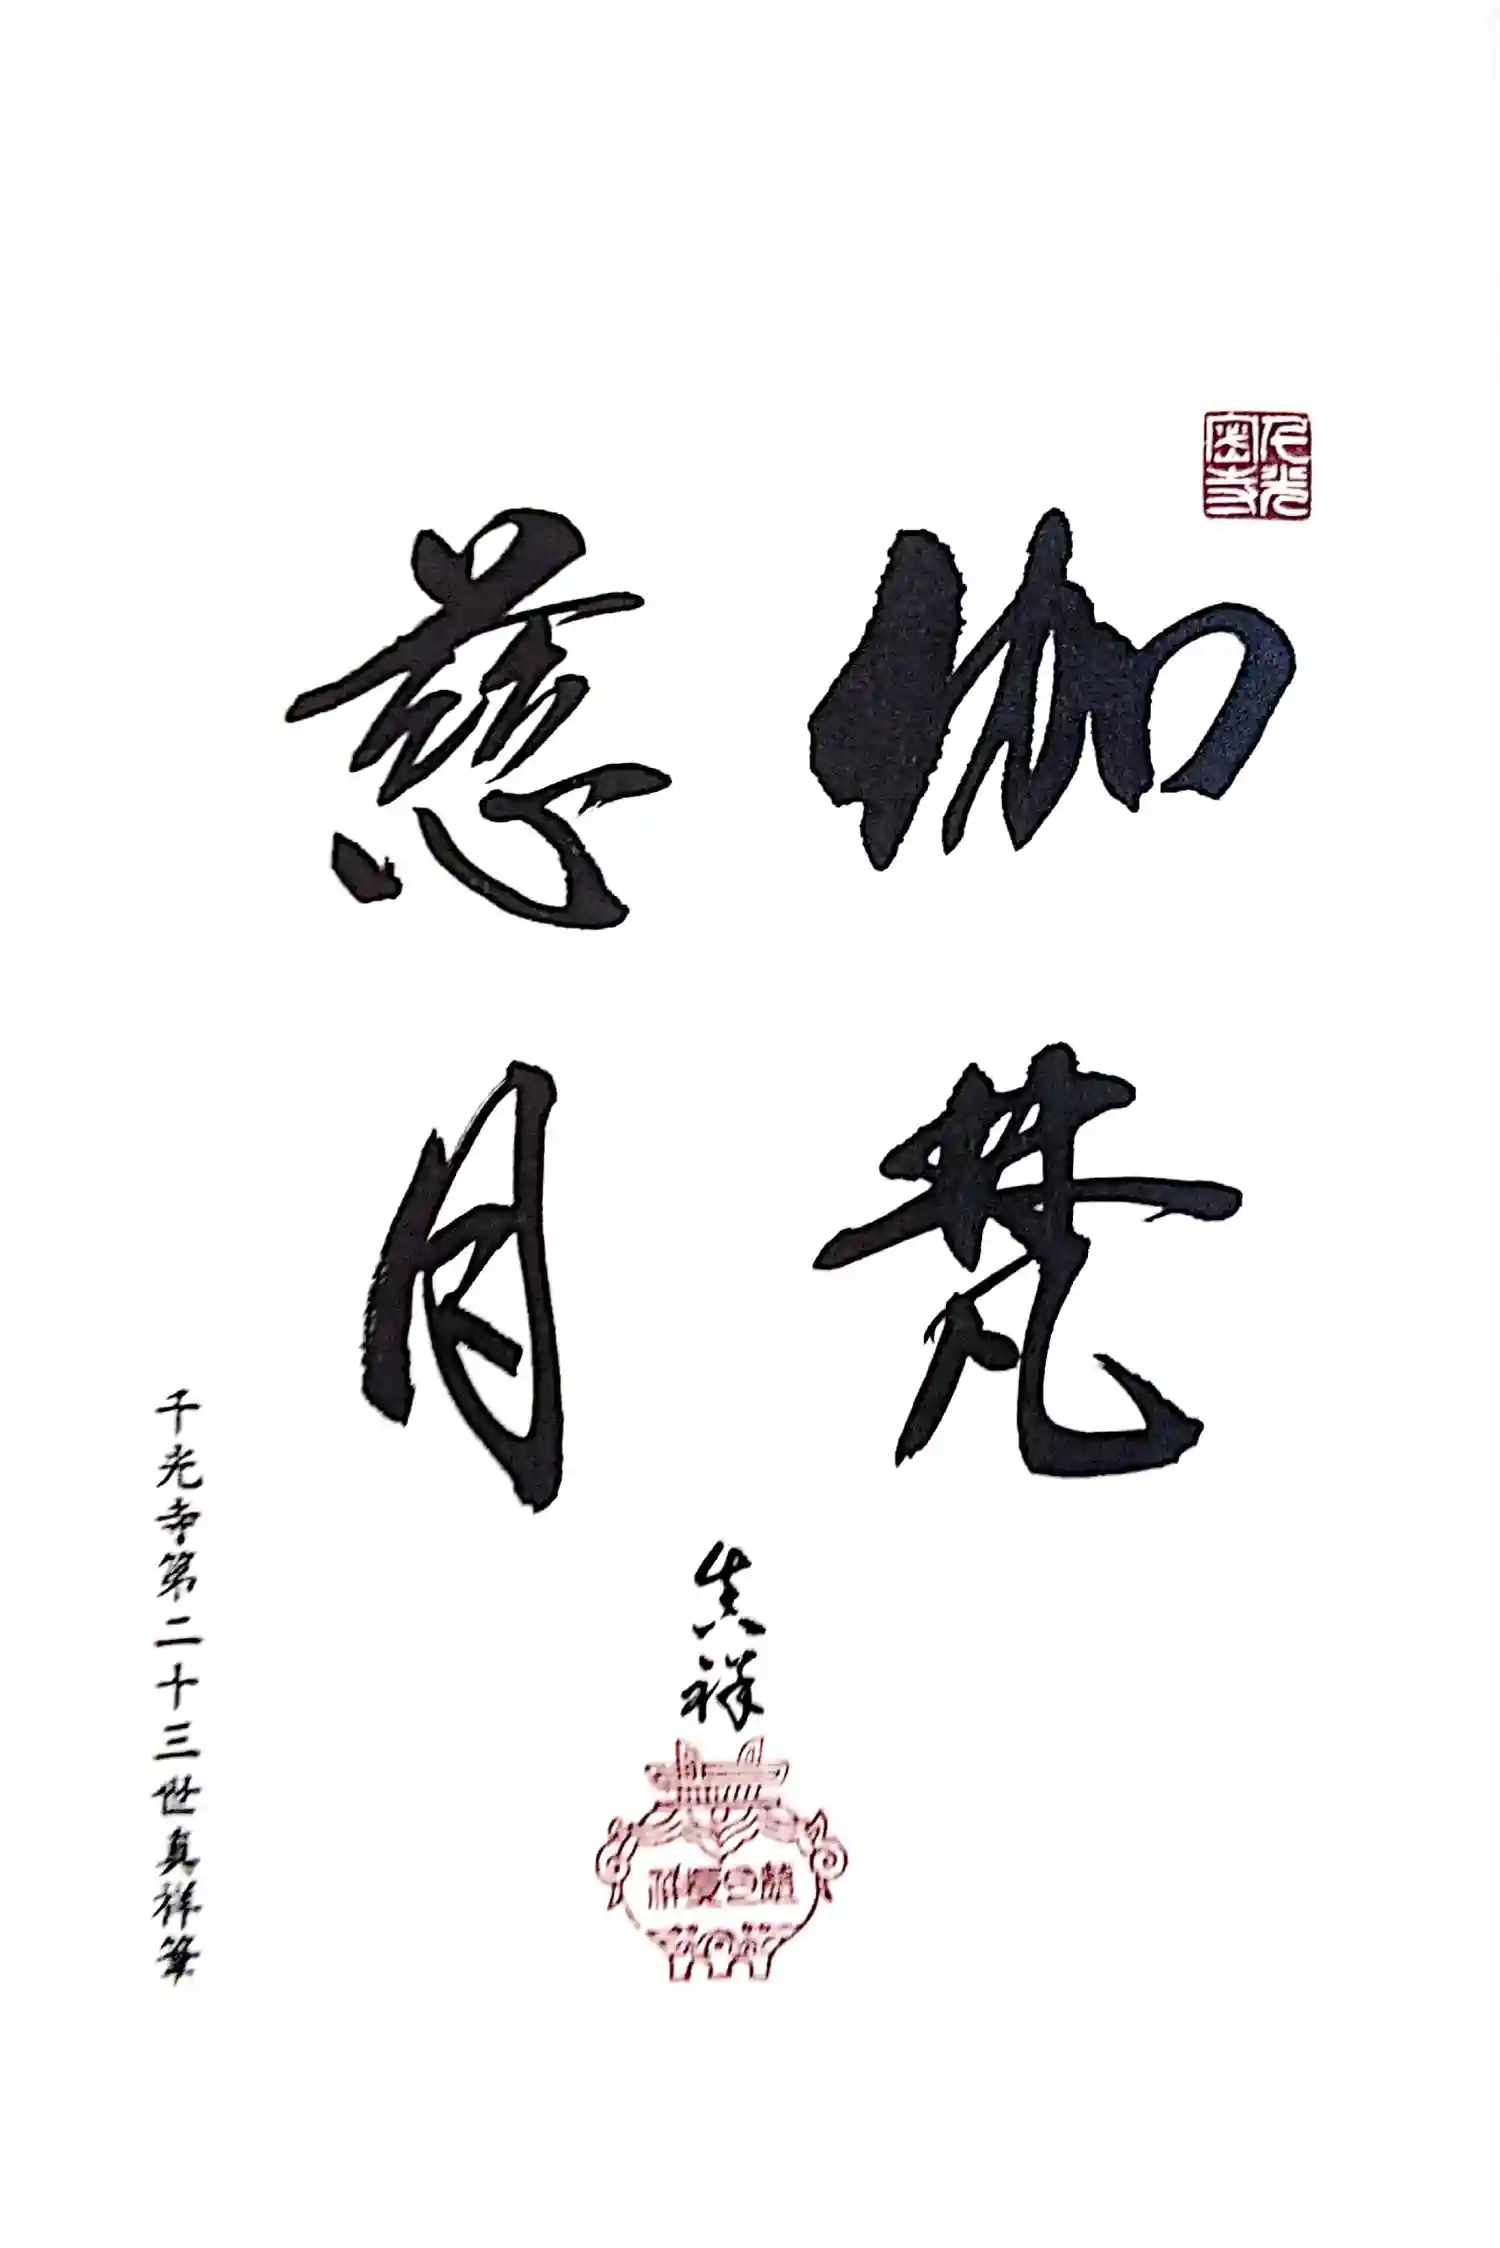 伽梵
慈月
真祥
千光寺第二十三世真祥筆